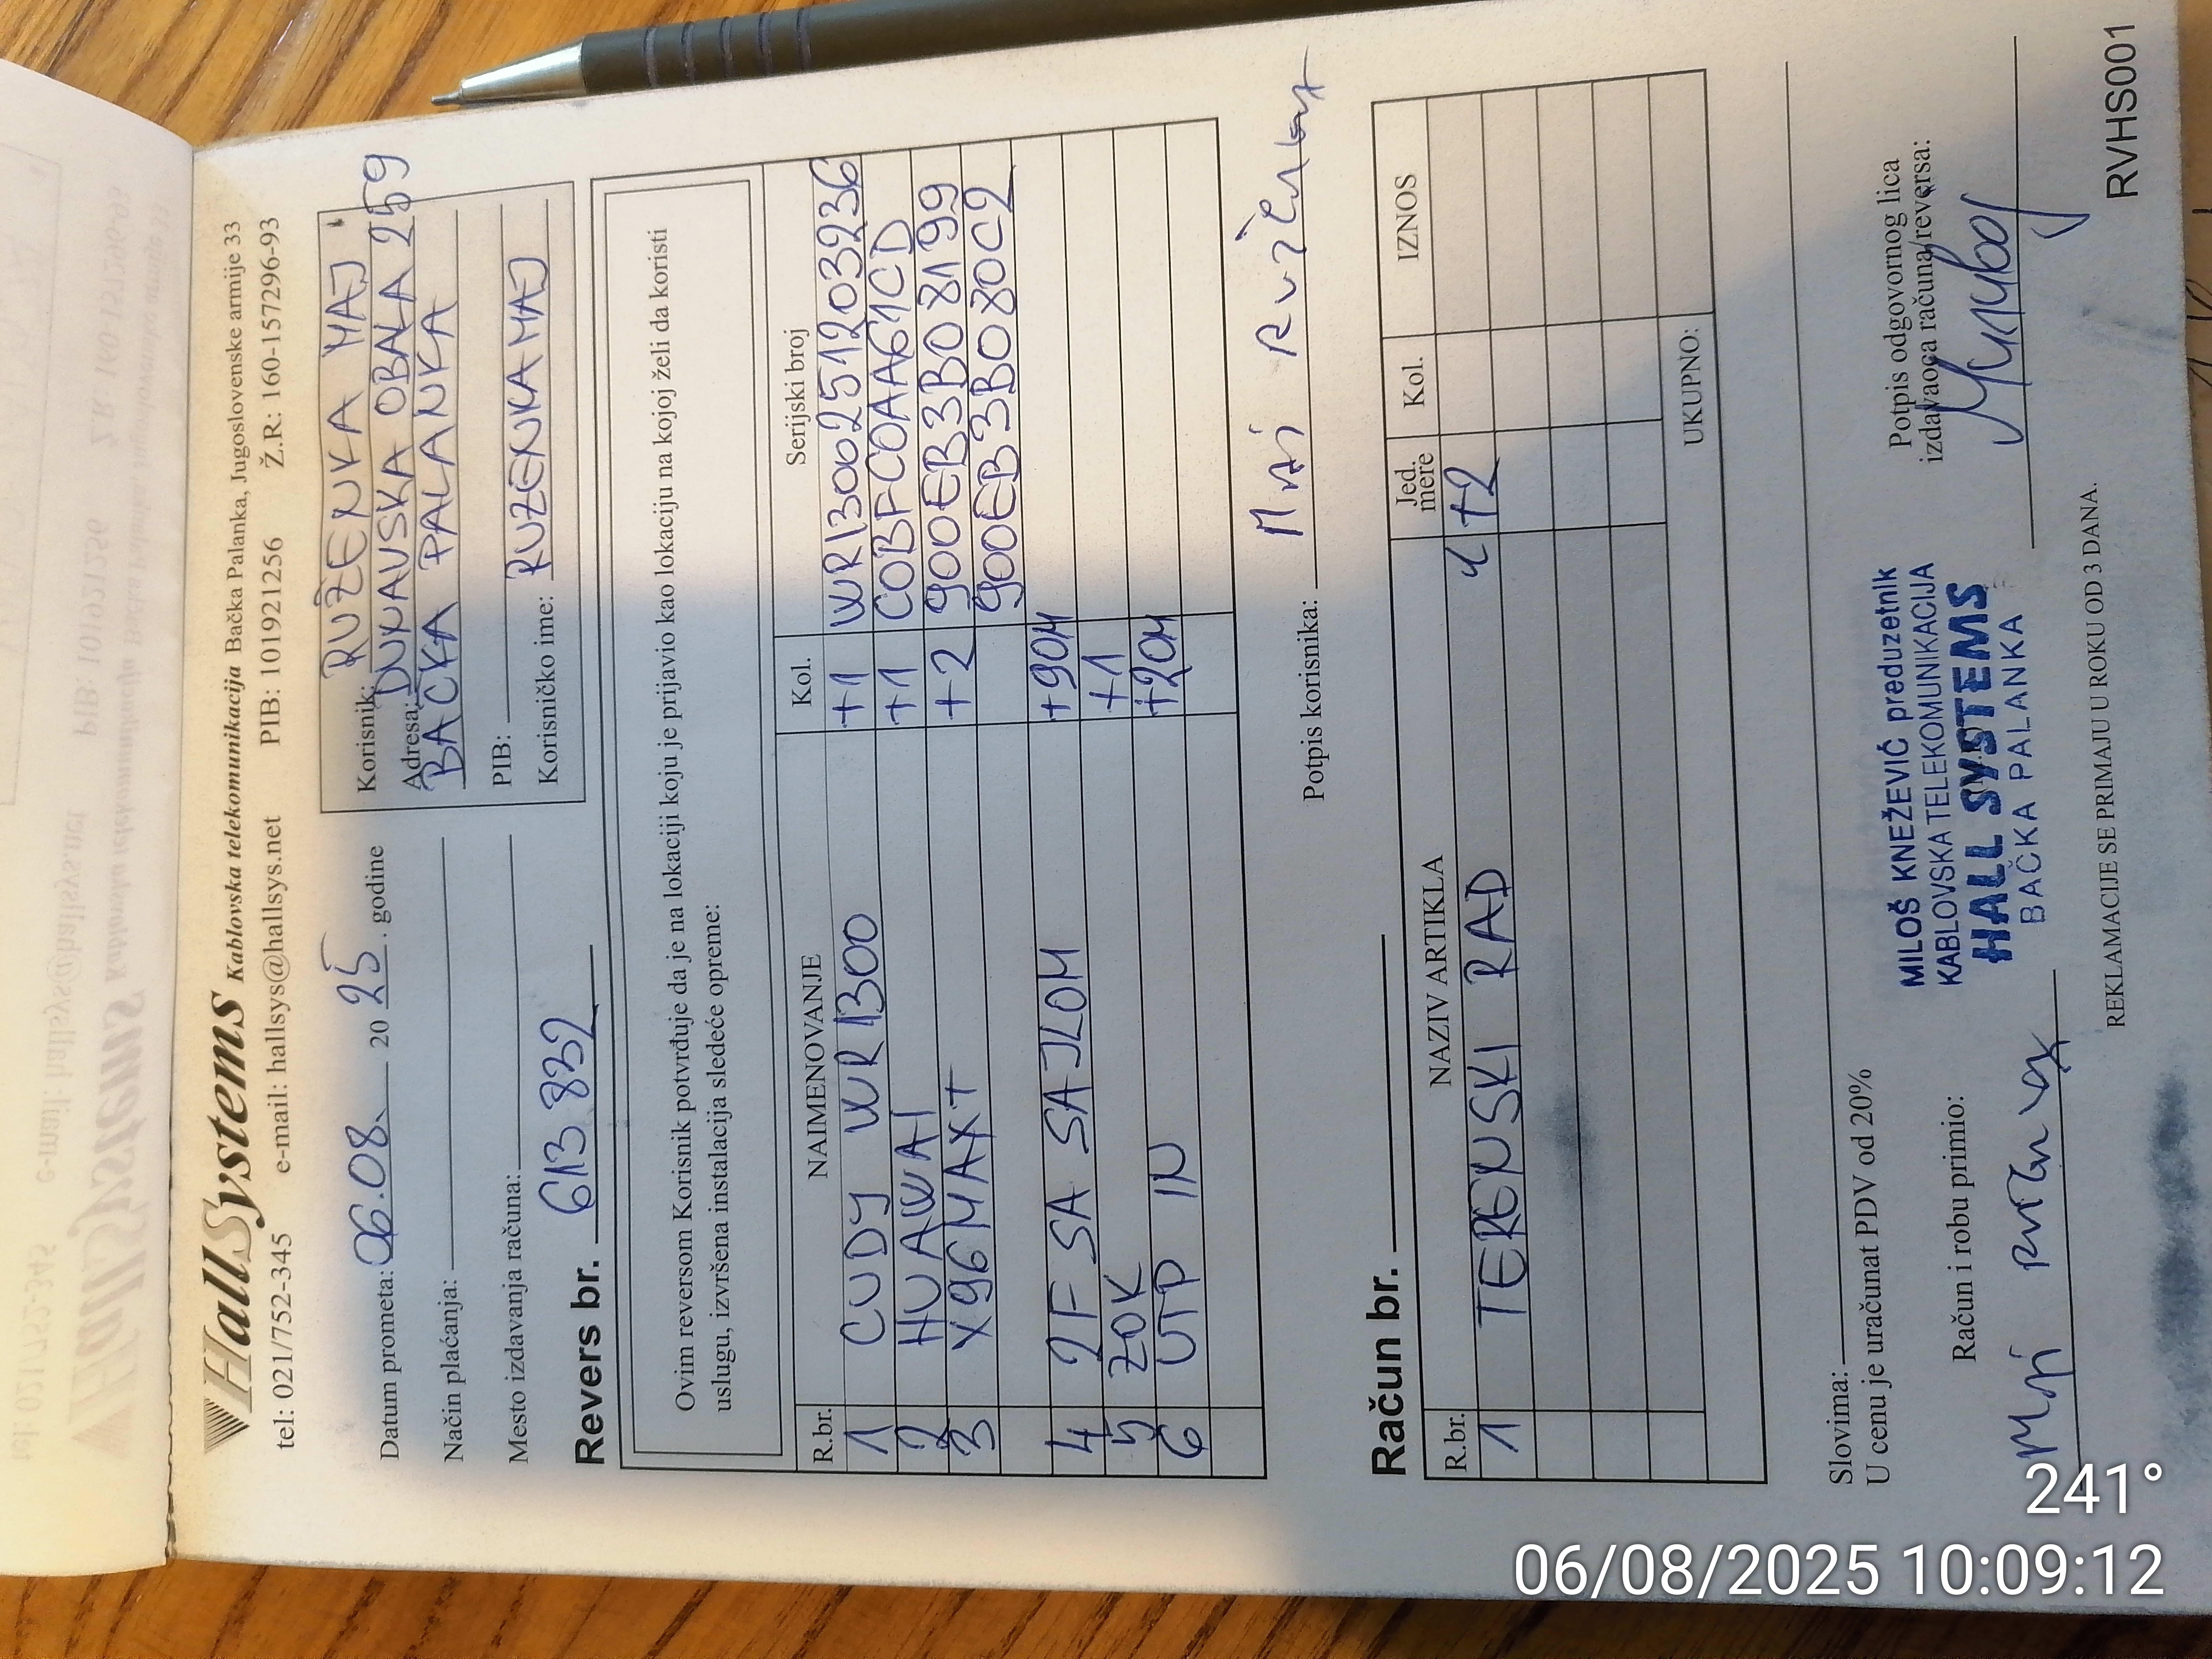 HallSystems Kablovska telekomunikacija Bačka Palanka, Jugoslovenske armije 33
tel: 021/752-345 e-mail: hallsys@hallsys.net PIB: 101921256 Ž.R.: 160-157296-93
Datum prometa: 06.08. 20 25. godine
Način plaćanja:
Mesto izdavanja računa:
Korisnik: RUŽENKA MAJ
Adresa: DUNAVSKA OBALA 259
BAČKA PALANKA
PIB:
Korisničko ime: RUZENKAMAJ
Revers br. 613 832
Ovim reversom Korisnik potvrđuje da je na lokaciji koju je prijavio kao lokaciju na kojoj želi da koristi
uslugu, izvršena instalacija sledeće opreme:
R.br. NAIMENOVANJE Kol. Serijski broj
1 CUDY WR1300 +1 WR1300251203236
2 HUAWAI +1 COBFCOAA61CD
3 X96MAX+ +2 900EB3B08199
900EB3B080C2
4 2F SA SAJLOM +90M
5 ZOK +1
6 UTP IN +20M
Potpis korisnika: Maj Ruženka
Račun br.
R.br. NAZIV ARTIKLA Jed. mere Kol. IZNOS
1 TERENSKI RAD č +2
UKUPNO:
Slovima:
U cenu je uračunat PDV od 20%
Račun i robu primio:
MILOŠ KNEŽEVIĆ preduzetnik
KABLOVSKA TELEKOMUNIKACIJA
HALL SYSTEMS
BAČKA PALANKA
Potpis odgovornog lica
izdavaoca računa/reversa:
REKLAMACIJE SE PRIMAJU U ROKU OD 3 DANA.
RVHS001
241°
06/08/2025 10:09:12